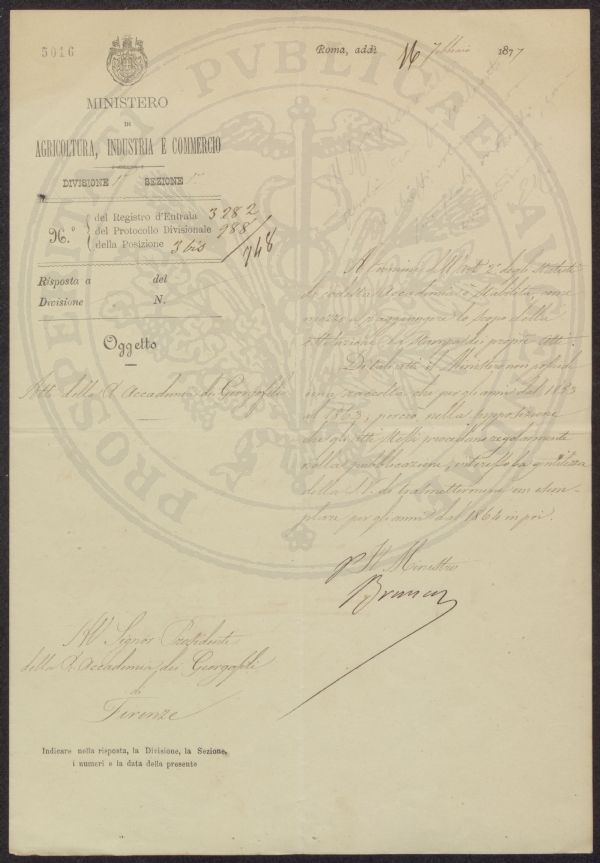 5016
Roma, addì 16 Febbraio 1877
MINISTERO
DI
AGRICOLTURA, INDUSTRIA E COMMERCIO
DIVISIONE 1ª SEZIONE
N.°
del Registro d'Entrata 3282
del Protocollo Divisionale 988/748
della Posizione 3 bis
Risposta a del
Divisione N.
Oggetto
Atti della R. Accademia dei Georgofili
A termini dell'art. 2° degli Statuti
di codesta Accademia è stabilita, come
mezzo a raggiungere lo scopo della
istituzione la stampa dei propri atti.
Di tali atti il Ministero non possiede
una raccolta che per gli anni dal 1853
al 1863, perciò nella supposizione
che gli atti stessi procedano regolarmente
nella pubblicazione, interesso la gentilezza
della S.V. di trasmettermene un esem-
plare per gli anni dal 1864 in poi.
p. Il Ministro
Branca
All' Signor Presidente
della R. Accademia dei Georgofili
di
Firenze
Indicare nella risposta, la Divisione, la Sezione,
i numeri e la data della presente
PROSPERITATI PVBLICAE AVGENDAE